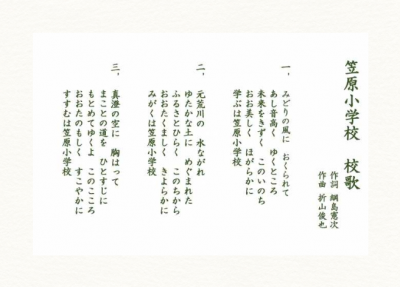 笠原小学校 校歌
作詞 綱島憲次
作曲 折山俊也
一、みどりの風に おくられて
あし音高く ゆくところ
未来をきずく このいのち
おお美しく ほがらかに
学ぶは笠原小学校
二、元荒川の 水ながれ
ゆたかな土に めぐまれた
ふるさとひらく このちから
おおたくましく きよらかに
みがくは笠原小学校
三、真澄の空に 胸はって
まことの道を ひとすじに
もとめてゆくよ このこころ
おおたのもしく すこやかに
すすむは笠原小学校